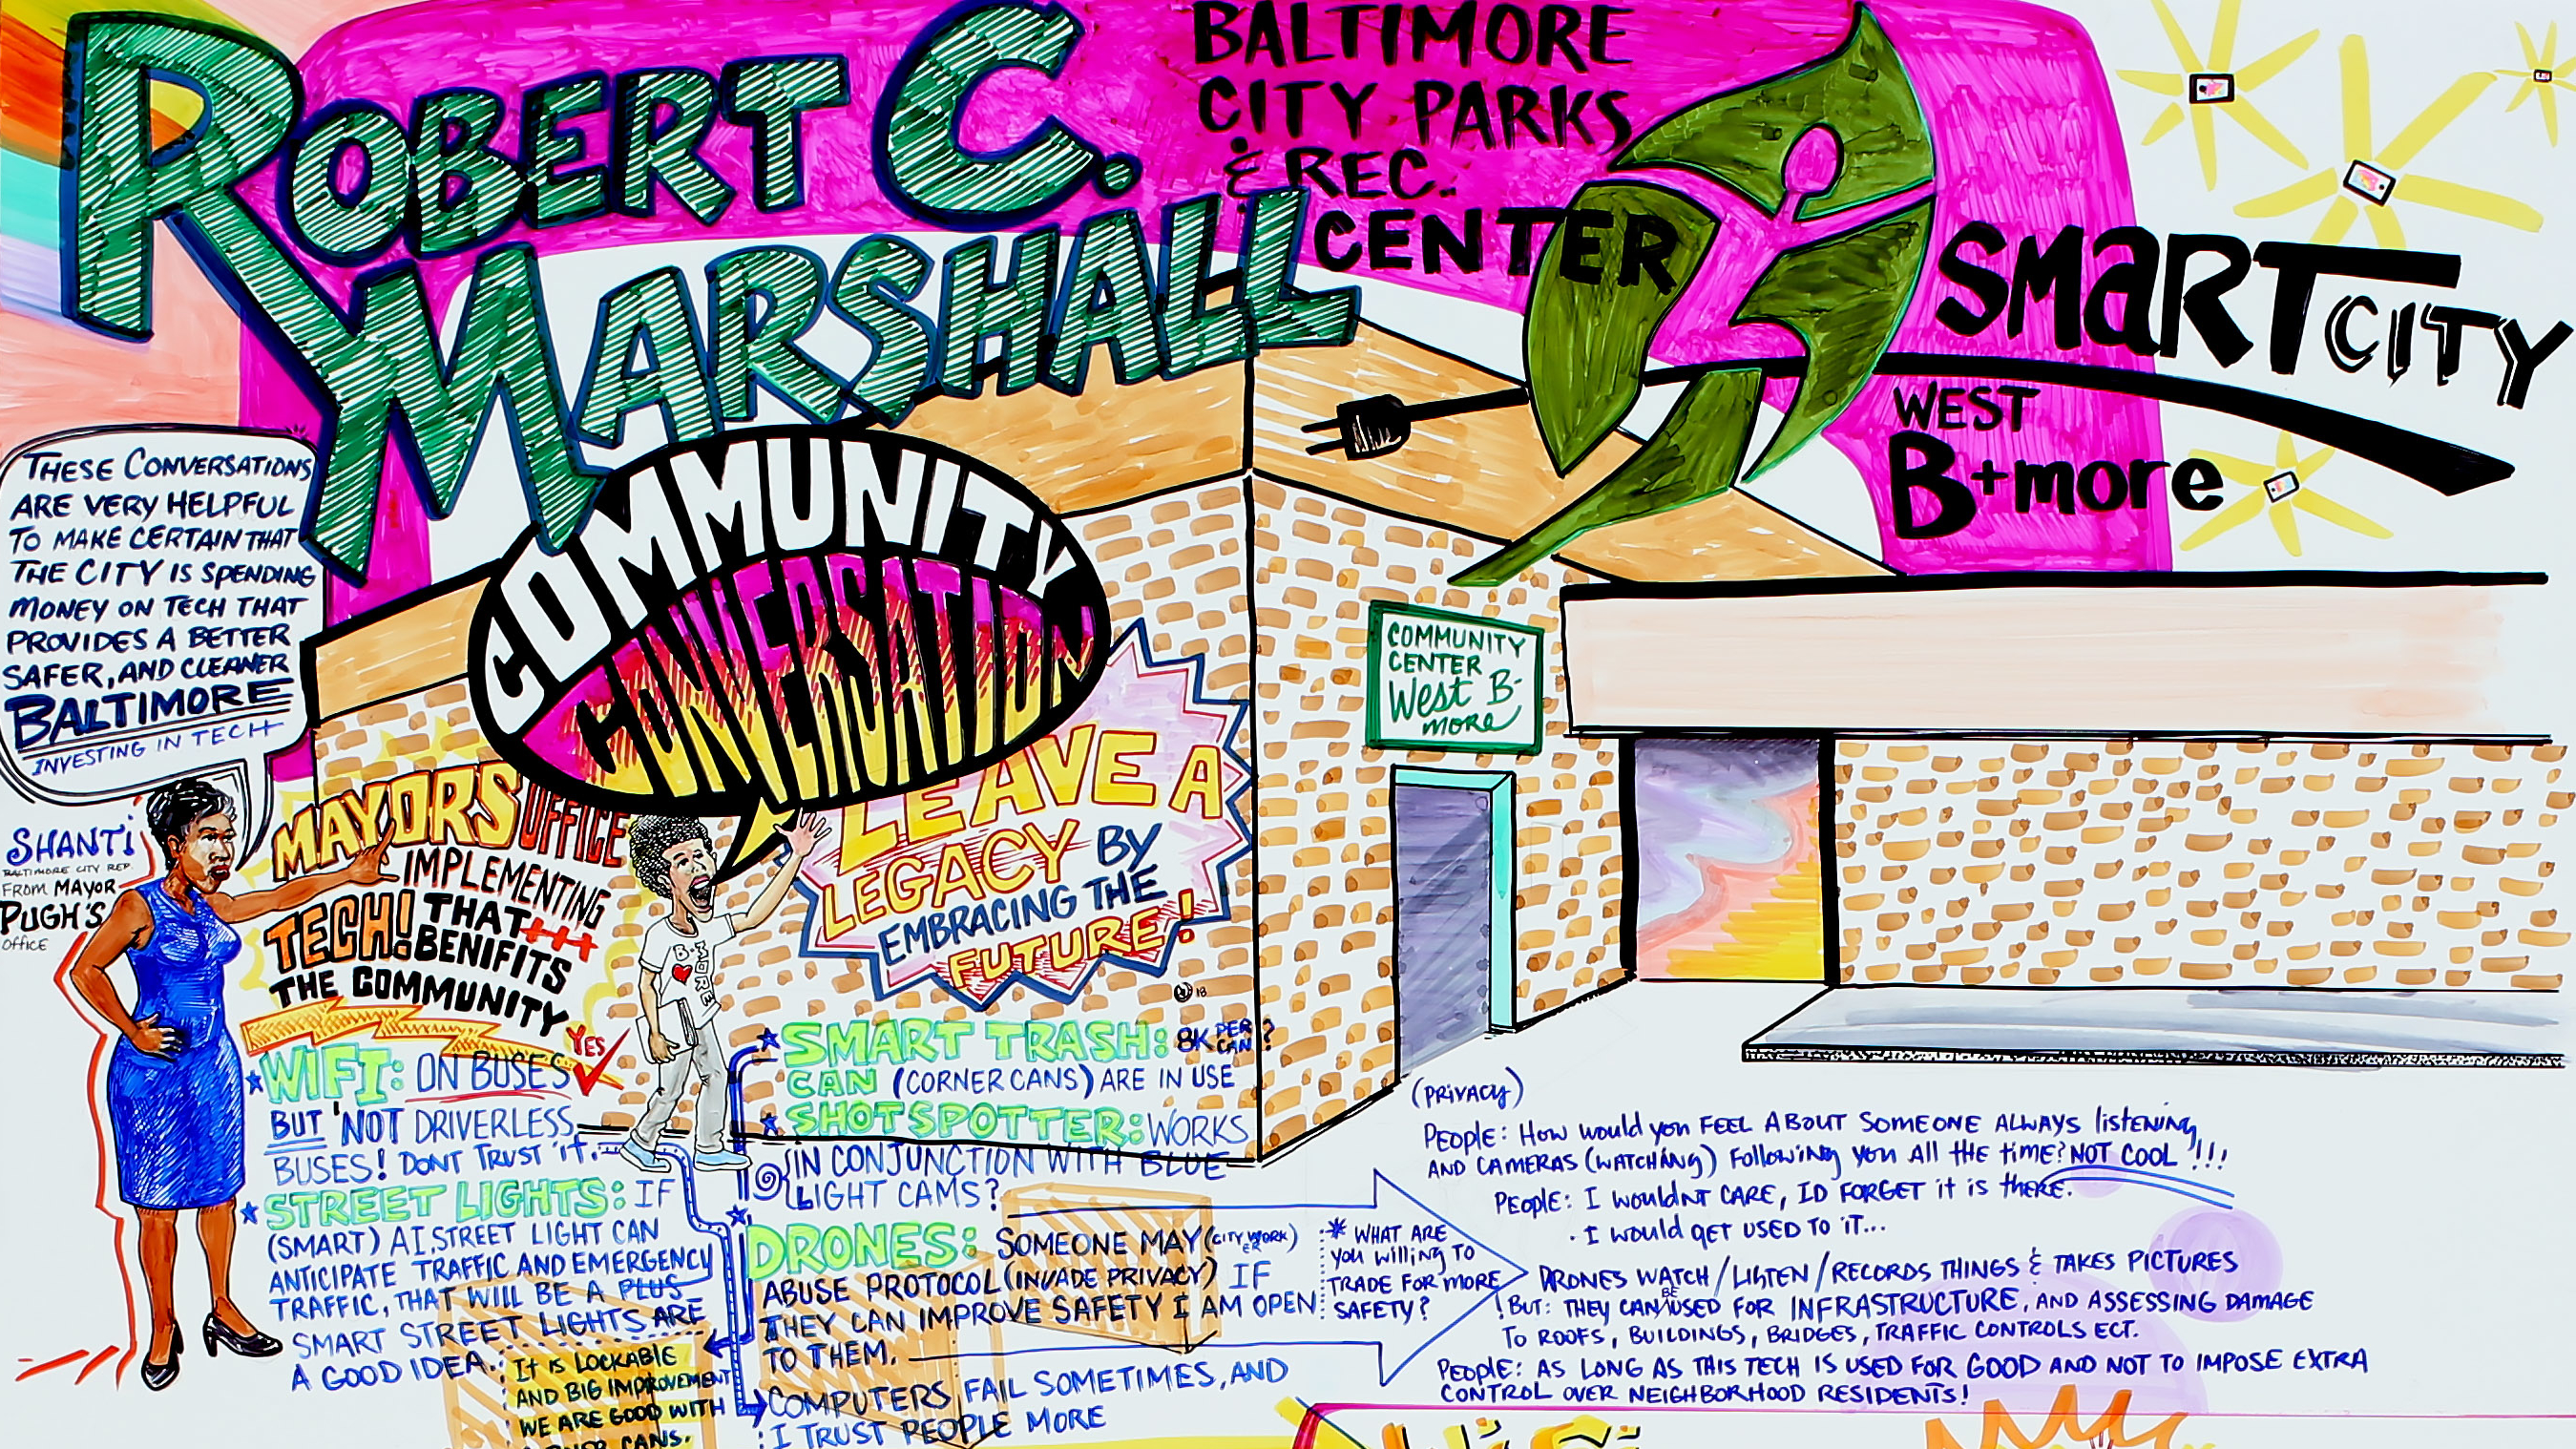 ROBERT C.
MARSHALL
BALTIMORE
CITY PARKS
& REC.
CENTER
SMaRT CITY
WEST
B+more
THESE CONVERSATIONS
ARE VERY HELPFUL
TO MAKE CERTAIN THAT
THE CITY IS SPENDING
MONEY ON TECH THAT
PROVIDES A BETTER
SAFER, AND CLEANER
BALTIMORE
INVESTING IN TECH
SHANTI
BALTIMORE CITY REP.
FROM MAYOR
PUGH'S
OFFICE
COMMUNITY
CONVERSATION
MAYORS OFFICE
IMPLEMENTING
TECH! THAT
BENIFITS
THE COMMUNITY
B-MORE
LEAVE A
LEGACY BY
EMBRACING THE
FUTURE!
18
COMMUNITY
CENTER
West B-
more
WIFI: ON BUSES YES
BUT NOT DRIVERLESS
BUSES! DONT TRUST IT.
STREET LIGHTS: IF
(SMART) A.I. STREET LIGHT CAN
ANTICIPATE TRAFFIC AND EMERGENCY
TRAFFIC, THAT WILL BE A PLUS
SMART STREET LIGHTS ARE
A GOOD IDEA.
IT IS LOCKABLE
AND BIG IMPROVEMENT
WE ARE GOOD WITH
CANS.
SMART TRASH: 8K PER CAN?
CAN (CORNER CANS) ARE IN USE
SHOTSPOTTER: WORKS
IN CONJUNCTION WITH BLUE
LIGHT CAMS?
DRONES: SOMEONE MAY (CITY WORKER)
ABUSE PROTOCOL (INVADE PRIVACY) IF
THEY CAN IMPROVE SAFETY I AM OPEN
TO THEM.
COMPUTERS FAIL SOMETIMES, AND
I TRUST PEOPLE MORE
* WHAT ARE
YOU WILLING TO
TRADE FOR MORE
SAFETY?
(PRIVACY)
PEOPLE: HOW WOULD YOU FEEL ABOUT SOMEONE ALWAYS listening
AND CAMERAS (WATCHING) FOLLOWING YOU ALL THE TIME? NOT COOL!!!
PEOPLE: I WOULDNT CARE, ID FORGET IT IS THERE.
· I WOULD GET USED TO IT...
DRONES WATCH / LISTEN / RECORDS THINGS & TAKES PICTURES
! BUT: THEY CAN BE USED FOR INFRASTRUCTURE, AND ASSESSING DAMAGE
TO ROOFS, BUILDINGS, BRIDGES, TRAFFIC CONTROLS ECT.
PEOPLE: AS LONG AS THIS TECH IS USED FOR GOOD AND NOT TO IMPOSE EXTRA
CONTROL OVER NEIGHBORHOOD RESIDENTS!